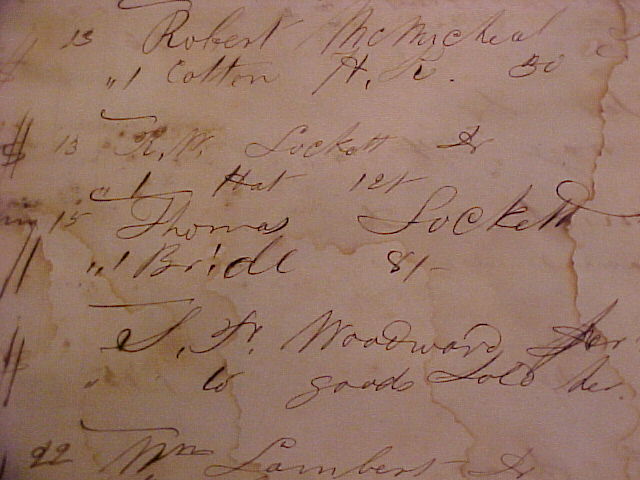 13 Robert McMicheal
"1 Cotton H. R. 50
13 R. W. Lockett Jr
"1 Hat 12/
15 Thomas Lockett
"1 Bridl 8/-
S. Fr. Woodward for
" to goods Sold her.
22 Wm Lambert Jr